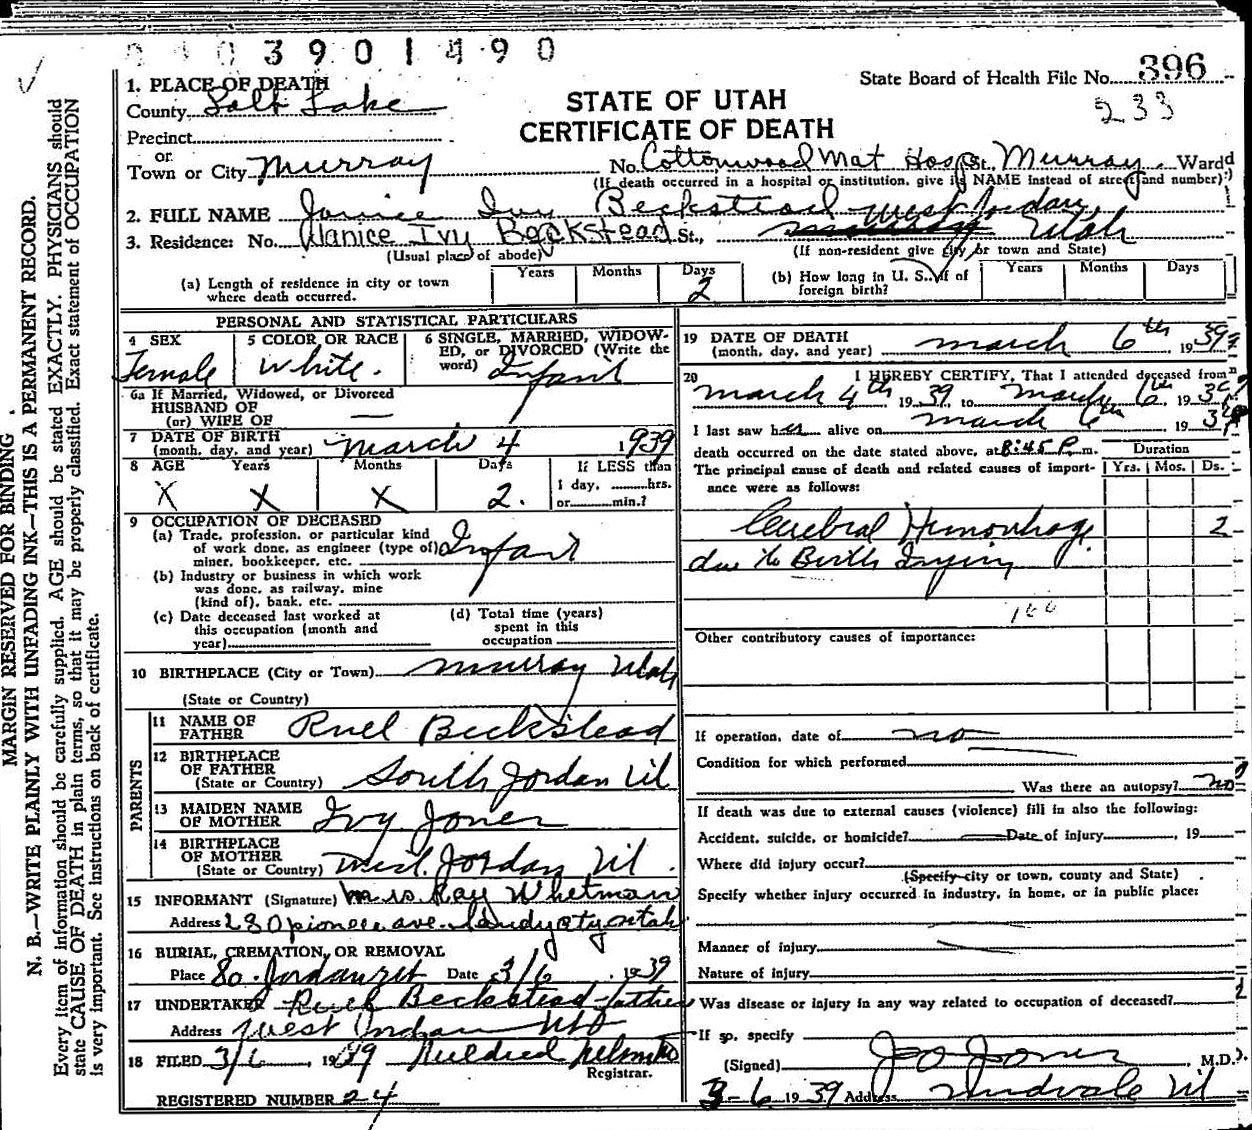 3901490
State Board of Health File No. 396
233
1. PLACE OF DEATH
County Salt Lake
STATE OF UTAH
CERTIFICATE OF DEATH
Precinct
or
Town or City Murray No. Cottonwood Mat Hosp St. Murray Ward
(If death occurred in a hospital or institution, give its NAME instead of street and number)
2. FULL NAME Janice Ivy Beckstead West Jordan,
3. Residence: No. Janice Ivy Beckstead St., Murray Utah
(Usual place of abode) (If non-resident give city or town and State)
(a) Length of residence in city or town where death occurred. Years Months Days 2
(b) How long in U. S., if of foreign birth? Years Months Days
PERSONAL AND STATISTICAL PARTICULARS
4 SEX Female
5 COLOR OR RACE White.
6 SINGLE, MARRIED, WIDOWED, or DIVORCED (Write the word) Infant
6a If Married, Widowed, or Divorced
HUSBAND OF
(or) WIFE OF —
7 DATE OF BIRTH
(month, day, and year) March 4 1939
8 AGE Years Months Days If LESS than
X X X 2. 1 day, hrs.
or min.?
9 OCCUPATION OF DECEASED
(a) Trade, profession, or particular kind
of work done, as engineer (type of) Infant
miner, bookkeeper, etc.
(b) Industry or business in which work
was done, as railway, mine
(kind of), bank, etc.
(c) Date deceased last worked at
this occupation (month and
year)
(d) Total time (years)
spent in this
occupation
10 BIRTHPLACE (City or Town) Murray Utah
(State or Country)
PARENTS
11 NAME OF
FATHER Ruel Beckstead
12 BIRTHPLACE
OF FATHER
(State or Country) South Jordan Ut
13 MAIDEN NAME
OF MOTHER Ivy Jones
14 BIRTHPLACE
OF MOTHER
(State or Country) West Jordan Ut.
15 INFORMANT (Signature) Mrs. Ray Whetman
Address 280 pioneer ave. Sandy City Utah
16 BURIAL, CREMATION, OR REMOVAL
Place So. Jordan Date 3/6, 1939
17 UNDERTAKER Ruel Beckstead father
Address West Jordan
18 FILED 3/6, 1939 Mildred
Registrar.
REGISTERED NUMBER 24
19 DATE OF DEATH
(month, day, and year) March 6th 1939
20 I HEREBY CERTIFY, That I attended deceased from
March 4th, 1939, to March 6th, 1939
I last saw her alive on March 6th, 1939
death occurred on the date stated above, at 8:45 P. m. Duration
The principal cause of death and related causes of importance were as follows: Yrs. Mos. Ds.
Cerebral Hemorrhage 2
due to Birth Injury
160
Other contributory causes of importance:
If operation, date of no
Condition for which performed
Was there an autopsy? no
If death was due to external causes (violence) fill in also the following:
Accident, suicide, or homicide? Date of injury, 19
Where did injury occur?
(Specify city or town, county and State)
Specify whether injury occurred in industry, in home, or in public place:
Manner of injury
Nature of injury
Was disease or injury in any way related to occupation of deceased?
If so, specify
(Signed) J O Jones, M.D.
3-6, 1939 Address Midvale Ut
MARGIN RESERVED FOR BINDING
N. B.—WRITE PLAINLY WITH UNFADING INK—THIS IS A PERMANENT RECORD.
Every item of information should be carefully supplied. AGE should be stated EXACTLY. PHYSICIANS should
state CAUSE OF DEATH in plain terms, so that it may be properly classified. Exact statement of OCCUPATION
is very important. See instructions on back of certificate.